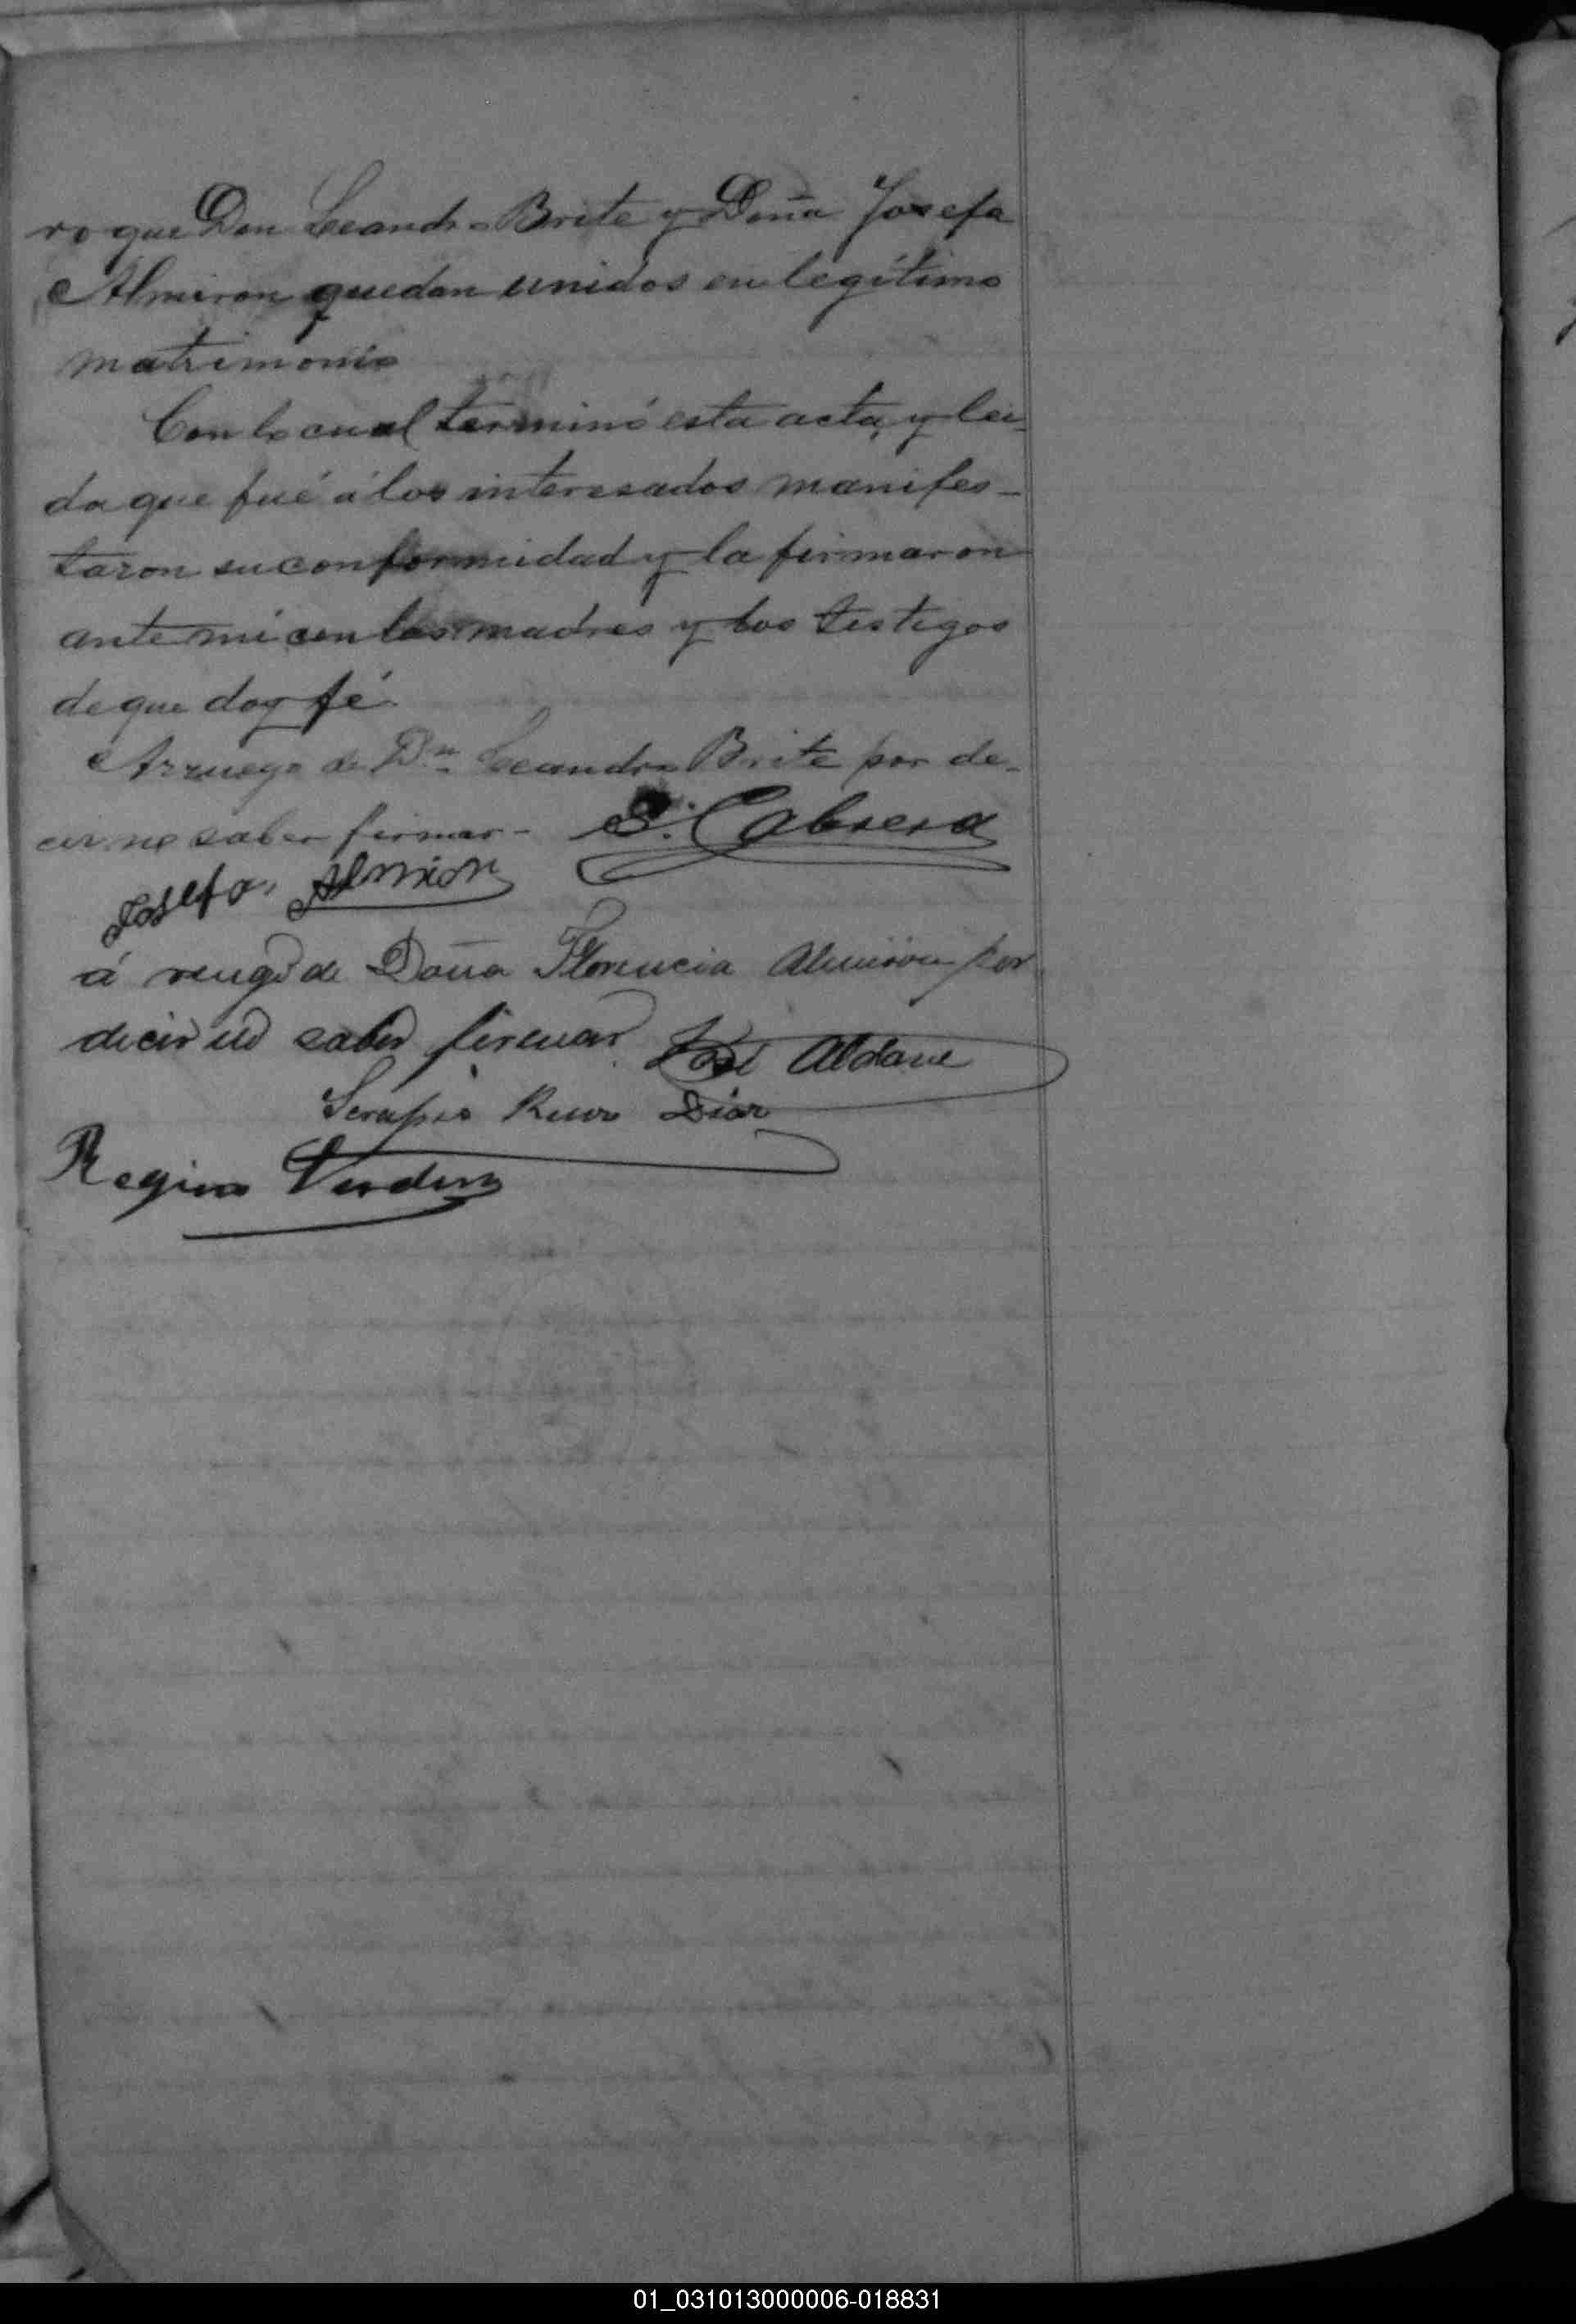 ro que Don Leandro Brite y Doña Josefa
Almiron quedan unidos en legítimo
matrimonio
Con lo cual terminó esta acta, y lei-
da que fué á los interesados manifes-
taron su conformidad y la firmaron
ante mi con las madres y los testigos
de que doy fé.
Arruego de Dn. Leandro Brite por de-
cir no saber firmar - S. Cabrera
Josefa Almiron
á ruego de Doña Florencia Almirón por
decir no saber firmar José Aldave
Serapio Díaz
Regino
01_031013000006-018831